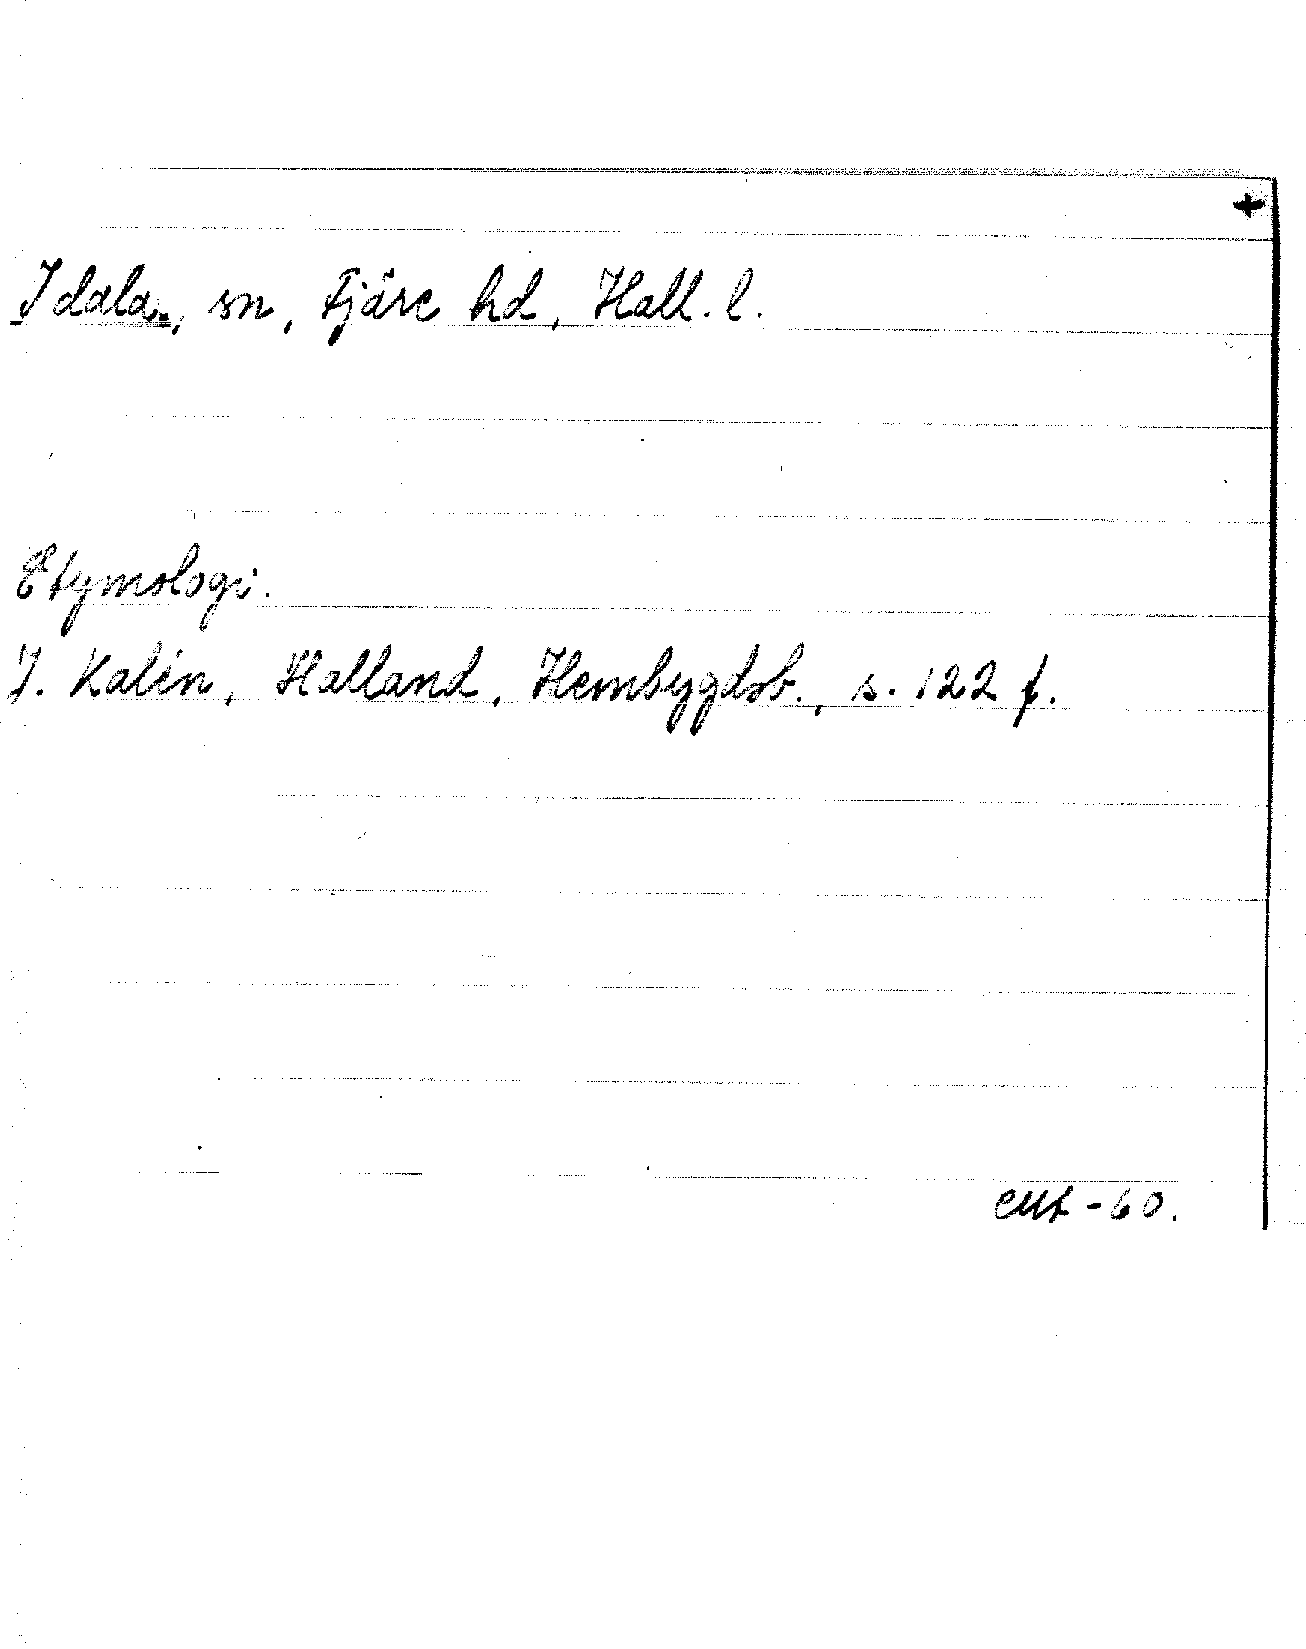 +
Idala, sn, Fjäre hd, Hall. l.
Etymologi.
J. Kalén, Halland, Hembygdsb., s. 122 f.
CMF-60.